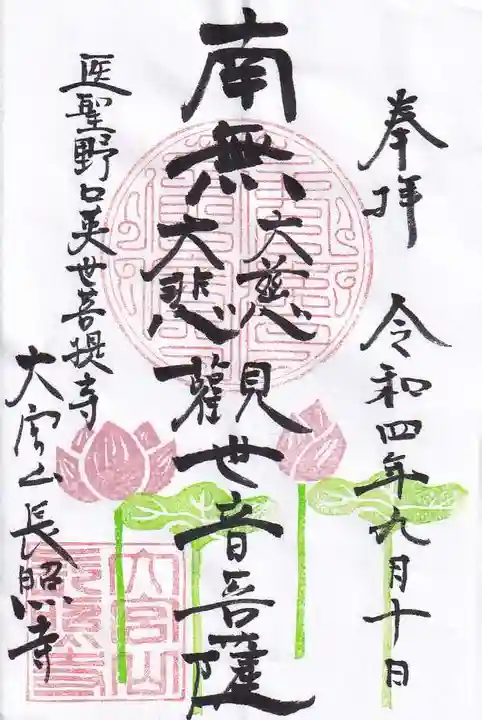 奉拝 令和四年九月十日
南無大慈大悲觀世音菩薩
医聖野口英世菩提寺
大宮山長照寺
大宮山
長照寺